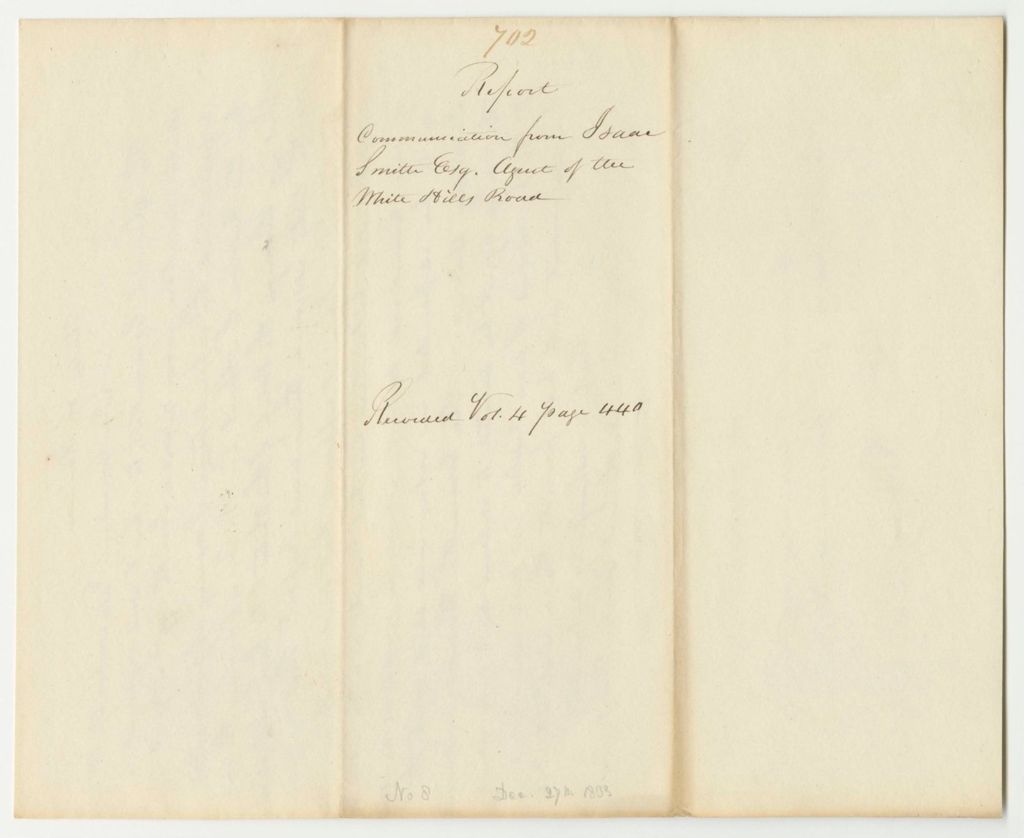 702
Report
Communication from Isaac
Smith Esq. Agent of the
White Hills Road
Recorded Vol. 4 page 440
No 8 Dec. 27th. 1833